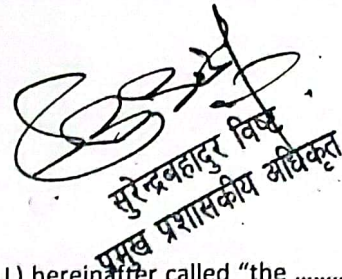 सुरेन्द्रबहादुर विष्ट
प्रमुख प्रशासकीय अधिकृत
L) hereinafter called "the ........